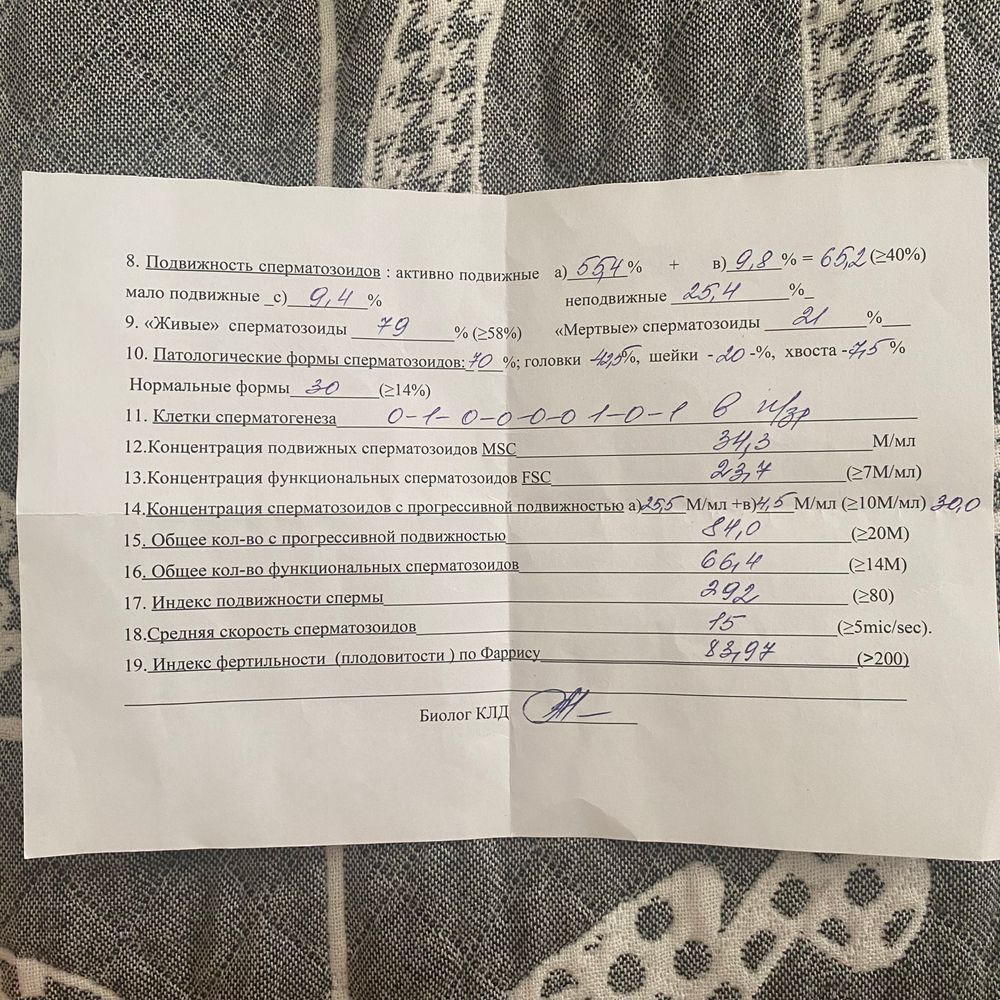 8. Подвижность сперматозоидов : активно подвижные а) 55,4 % + в) 9,8 % = 65,2 (≥40%)
мало подвижные _с) 9,4 % неподвижные 25,4 %_
9. «Живые» сперматозоиды 79 % (≥58%) «Мертвые» сперматозоиды 21 %
10. Патологические формы сперматозоидов: 70 %; головки 42,5%, шейки - 20 -%, хвоста - 7,5 %
Нормальные формы 30 (≥14%)
11. Клетки сперматогенеза 0-1-0-0-0-0 1-0-1 в п/зр
12.Концентрация подвижных сперматозоидов MSC 34,3 М/мл
13.Концентрация функциональных сперматозоидов FSC 23,7 (≥7М/мл)
14.Концентрация сперматозоидов с прогрессивной подвижностью а) 25,5 М/мл +в) 4,5 М/мл (≥10М/мл) 30,0
15. Общее кол-во с прогрессивной подвижностью 84,0 (≥20М)
16. Общее кол-во функциональных сперматозоидов 66,4 (≥14М)
17. Индекс подвижности спермы 292 (≥80)
18.Средняя скорость сперматозоидов 15 (≥5mic/sec).
19. Индекс фертильности (плодовитости ) по Фаррису 83,97 (>200)
Биолог КЛД